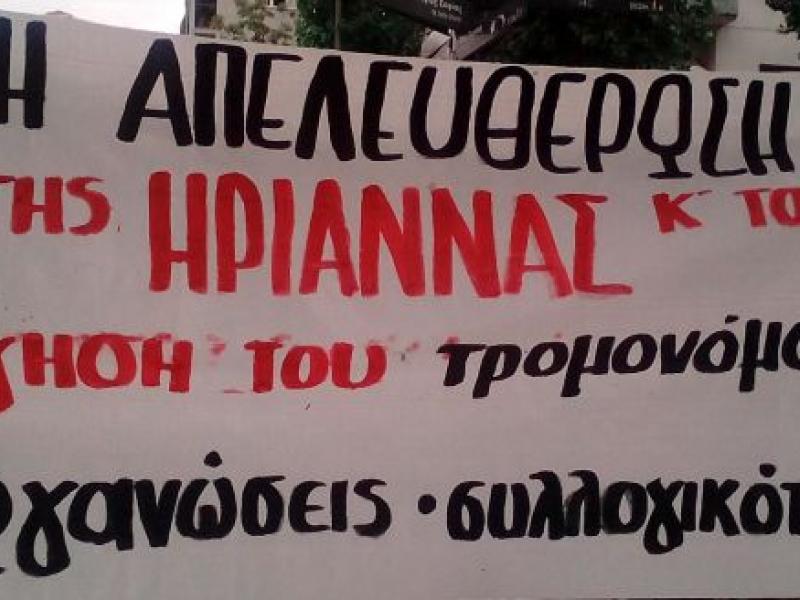 Η ΑΠΕΛΕΥΘΕΡΩΣΗ
ΤΗΣ ΗΡΙΑΝΝΑΣ Κ ΤΟ
γηση του τρομονόμο
γανώσεις · συλλογικότ